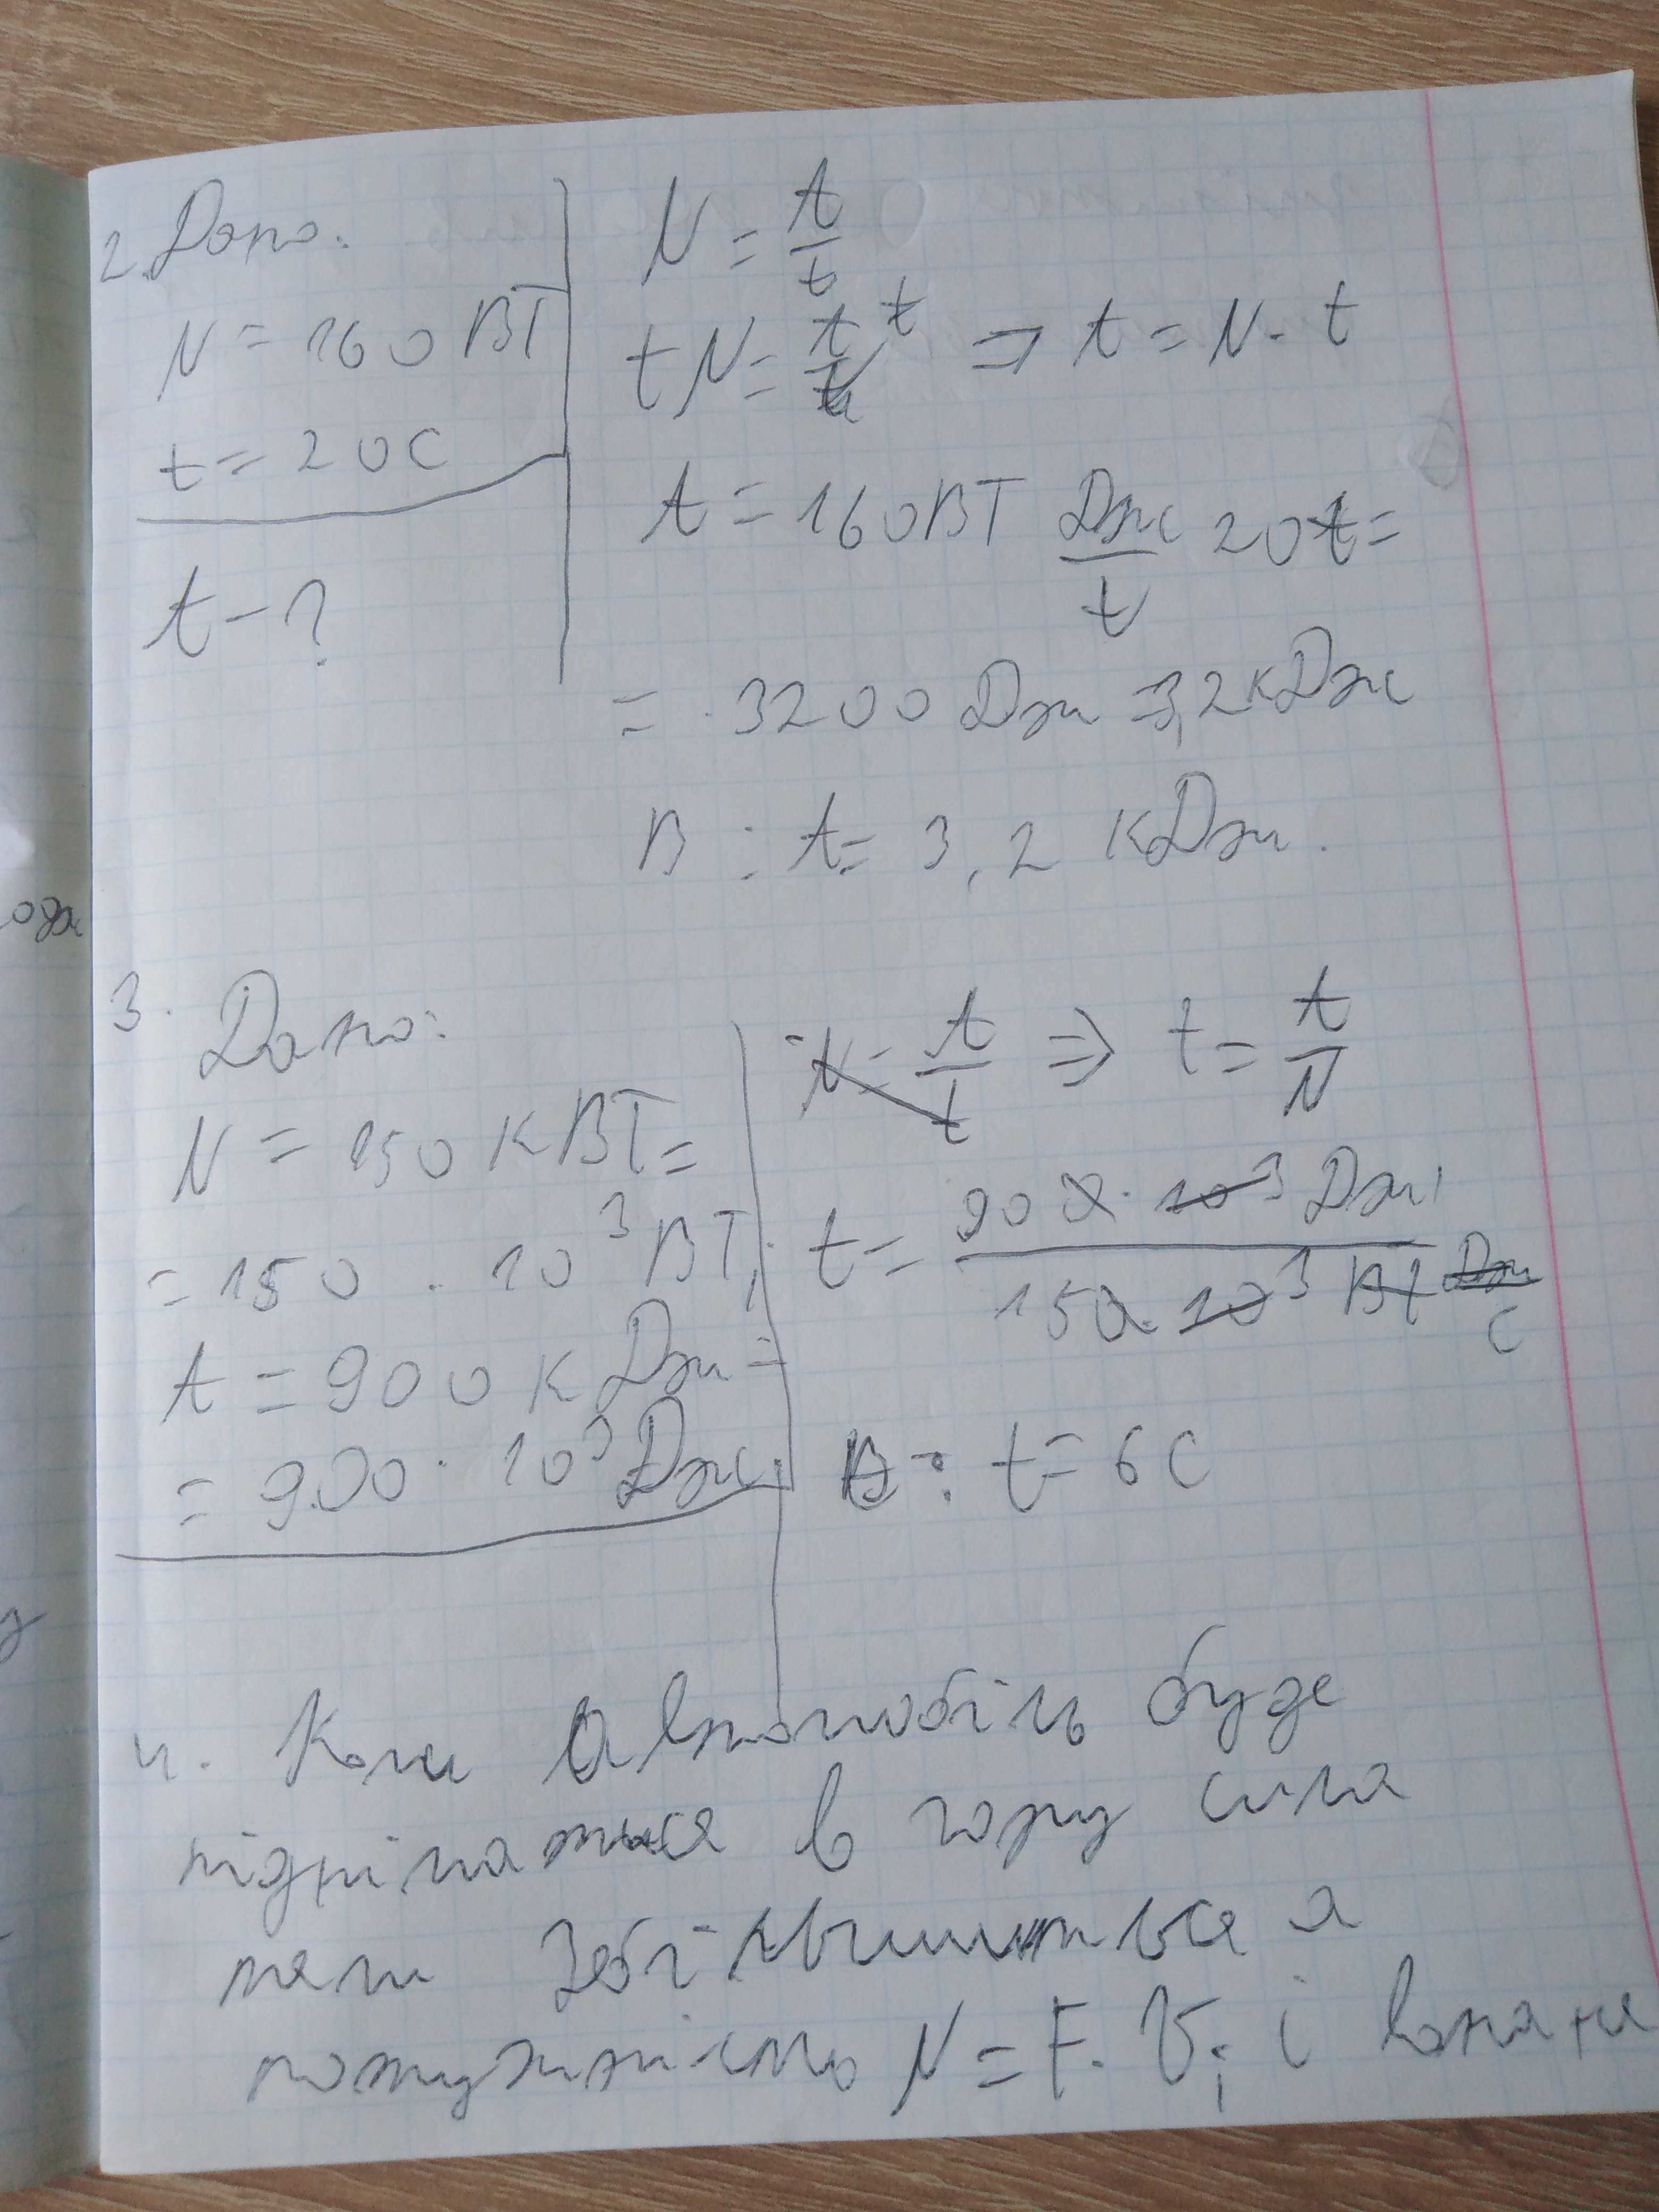 2. Дано:
N = 160 ВТ
t = 20 С
A - ?
N = A/t
tN = A/t t ⇒ A = N · t
A = 160 ВТ Дж/t 20 t =
= 3200 Дж = 3,2 кДж
В : A = 3,2 кДж.
3. Дано:
N = 150 кВТ =
= 150 · 10³ ВТ;
A = 900 кДж =
= 900 · 10³ Дж;
N = A/t ⇒ t = A/N
t = 900 · 10³ Дж / 150 · 10³ Вт Дж/с
В : t = 6 С
4. Коли Автомобіль буде
підніматися в гору сила
тяги збільшиться а
потужність N = F · V; і вона не
ода
у